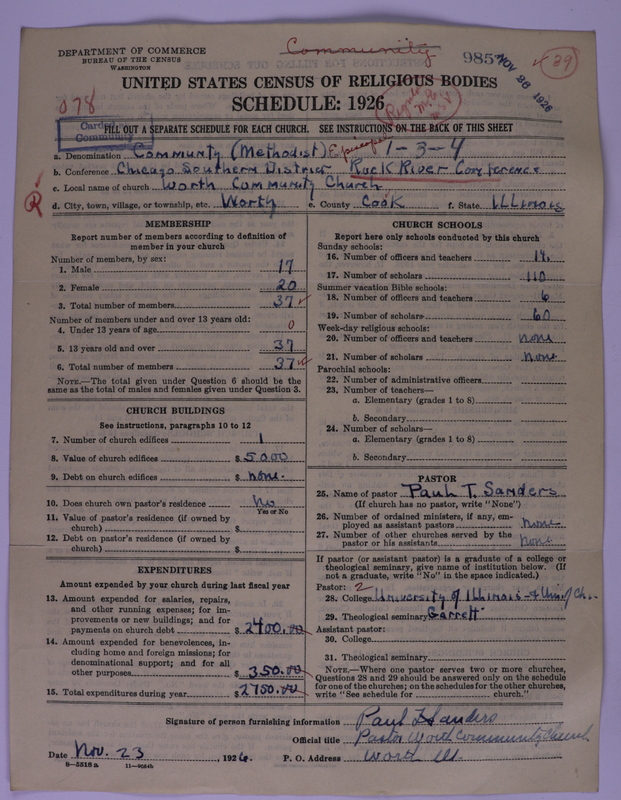 DEPARTMENT OF COMMERCE
BUREAU OF THE CENSUS
WASHINGTON
Community
985
NOV 26 1926
39
UNITED STATES CENSUS OF RELIGIOUS BODIES
SCHEDULE: 1926
078
Carded
Community
FILL OUT A SEPARATE SCHEDULE FOR EACH CHURCH. SEE INSTRUCTIONS ON THE BACK OF THIS SHEET
a. Denomination Community (Methodist) Episcopal 1-3-4
b. Conference Chicago Southern District Rock River Conference
c. Local name of church Worth Community Church
d. City, town, village, or township, etc. Worth e. County Cook f. State Illinois
R
MEMBERSHIP
Report number of members according to definition of
member in your church
Number of members, by sex:
1. Male 17
2. Female 20
3. Total number of members 37
Number of members under and over 13 years old:
4. Under 13 years of age 0
5. 13 years old and over 37
6. Total number of members 37
NOTE.—The total given under Question 6 should be
same as the total of males and females given under Question 3.
CHURCH BUILDINGS
See instructions, paragraphs 10 to 12
7. Number of church edifices 1
8. Value of church edifices $5000
9. Debt on church edifices $ none.
10. Does church own pastor's residence No
Yes or No
11. Value of pastor's residence (if owned by
church) $
12. Debt on pastor's residence (if owned by
church) $
EXPENDITURES
Amount expended by your church during last fiscal year
13. Amount expended for salaries, repairs,
and other running expenses; for im-
provements or new building; and for
payments on church debt $2400.00
14. Amount expended for benevolences, in-
cluding home and foreign missions; for
denominational support; and for all
other purposes $350.00
15. Total expenditures during year $2750.00
CHURCH SCHOOLS
Report here only schools conducted by this church
Sunday schools:
16. Number of officers and teachers 14
17. Number of scholars 110
Summer vacation Bible schools:
18. Number of officers and teachers 6
19. Number of scholars 60
Week-day religious schools:
20. Number of officers and teachers none
21. Number of scholars none
Parochial schools:
22. Number of administrative officers
23. Number of teachers—
a. Elementary (grades 1 to 8)
b. Secondary
24. Number of scholars—
a. Elementary (grades 1 to 8)
b. Secondary
PASTOR
25. Name of pastor Paul T. Sanders
(If church has no pastor, write "None")
26. Number of ordained ministers, if any, em-
ployed as assistant pastors none
27. Number of other churches served by the
pastor or his assistants none
If pastor (or assistant pastor) is a graduate of a college or
theological seminary, give name of institution below. (If
not a graduate, write "No" in the space indicated.)
Pastor: 2
28. College University of Illinois - & Uni. of Ch.
29. Theological seminary Garrett
Assistant pastor:
30. College
31. Theological seminary
NOTE.—Where one pastor serves two or more churches,
Questions 28 and 29 should be answered only on the schedule
for one of the churches; on the schedules for the other churches,
write "See schedule for church."
Signature of person furnishing information Paul T Sanders
Official title Pastor Worth Community Church
Date Nov. 23, 1926. P. O. Address Worth Ill.
8—5518a 11—9034b